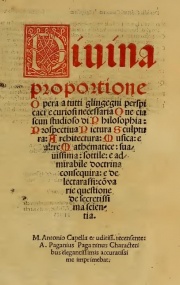 Divina
proportione
Opera a tutti glingegni perspi
caci e curiosi necessaria Que cia
scun studioso di Philosophia:
Prospectiva Pictura Sculptu
ra: Architectura: Musica: e
altre Mathematice: sua
vissima: sottile: e ad
mirabile doctrina
consequira: e de
lectarassi: cō va
rie questione
de secretissi
ma scien
tia.
M. Antonio Capella eruditiss. recensente:
A. Paganius Paganinus Characteri
bus elegantissimis accuratissi
me imprimebat.